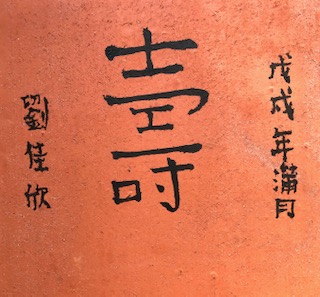 戊戌年滿月
壽
劉佳欣